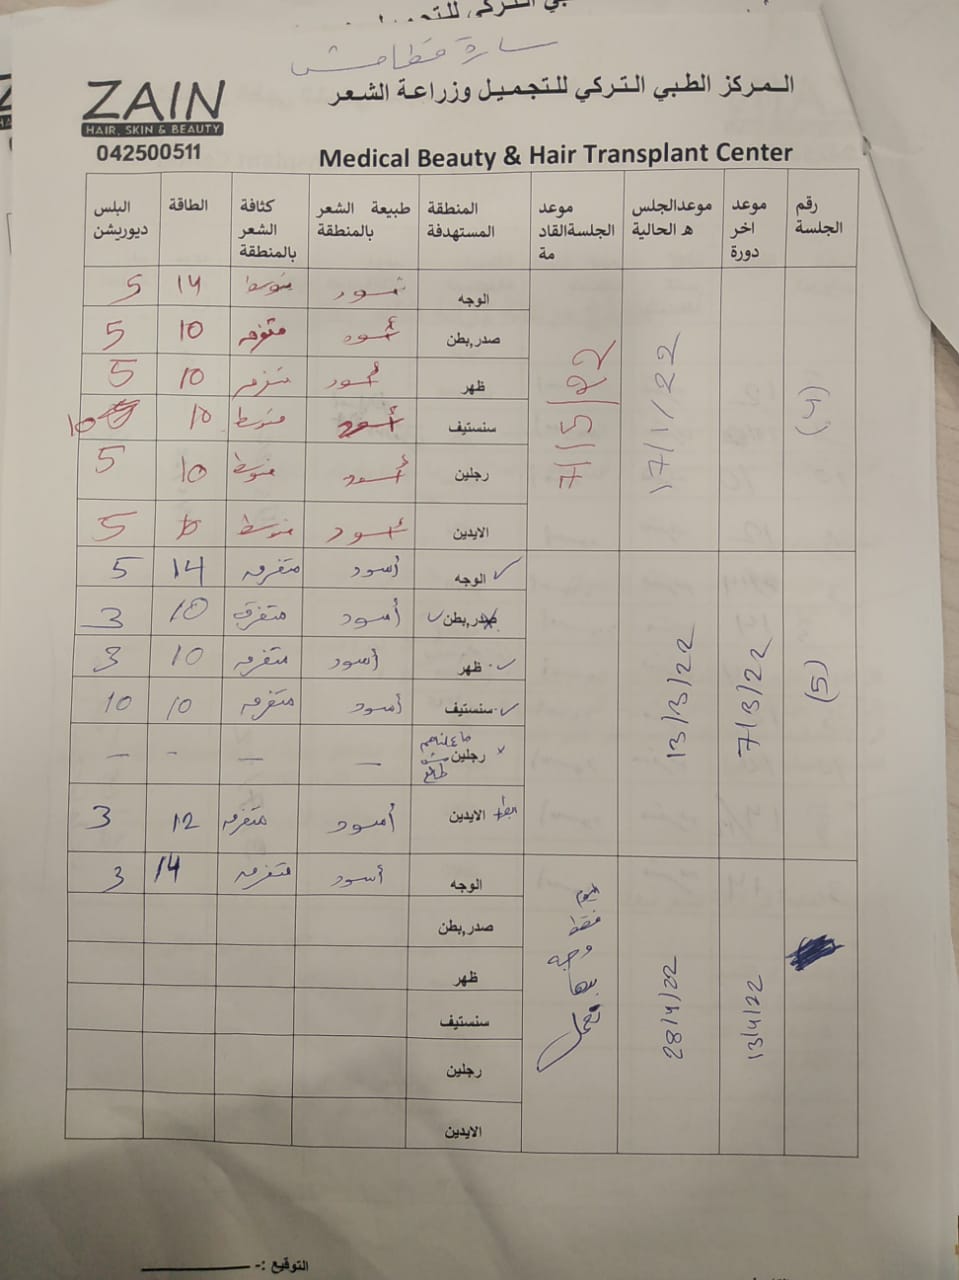 سارة
ZAIN
HAIR, SKIN & BEAUTY
042500511
المركز الطبي التركي للتجميل وزراعة الشعر
Medical Beauty & Hair Transplant Center
رقم الجلسة موعد اخر دورة موعدالجلس ه الحالية موعد الجلسةالقاد مة المنطقة المستهدفة طبيعة الشعر بالمنطقة كثافة الشعر بالمنطقة الطاقة البلس ديوريشن
(4) 17/1/22 7/5/22
الوجه أسود متوسط 14 5
صدر,بطن أسود متفرقه 10 5
ظهر أسود متفرقه 10 5
سنستيف أسود متوسط 10 10
رجلين أسود متوسط 10 5
الايدين أسود متوسط 5
(5) 7/3/22 13/3/22
✓ الوجه أسود متفرقه 14 5
صدر,بطن ✓ أسود متفرقه 10 3
✓ ظهر أسود متفرقه 10 3
✓ سنستيف أسود متفرقه 10 10
x رجلين — — - —
الايدين أسود متفرقه 12 3
13/4/22 28/4/22 فقط وجه
الوجه أسود متفرقه 14 3
صدر,بطن
ظهر
سنستيف
رجلين
الايدين
التوقيع :-